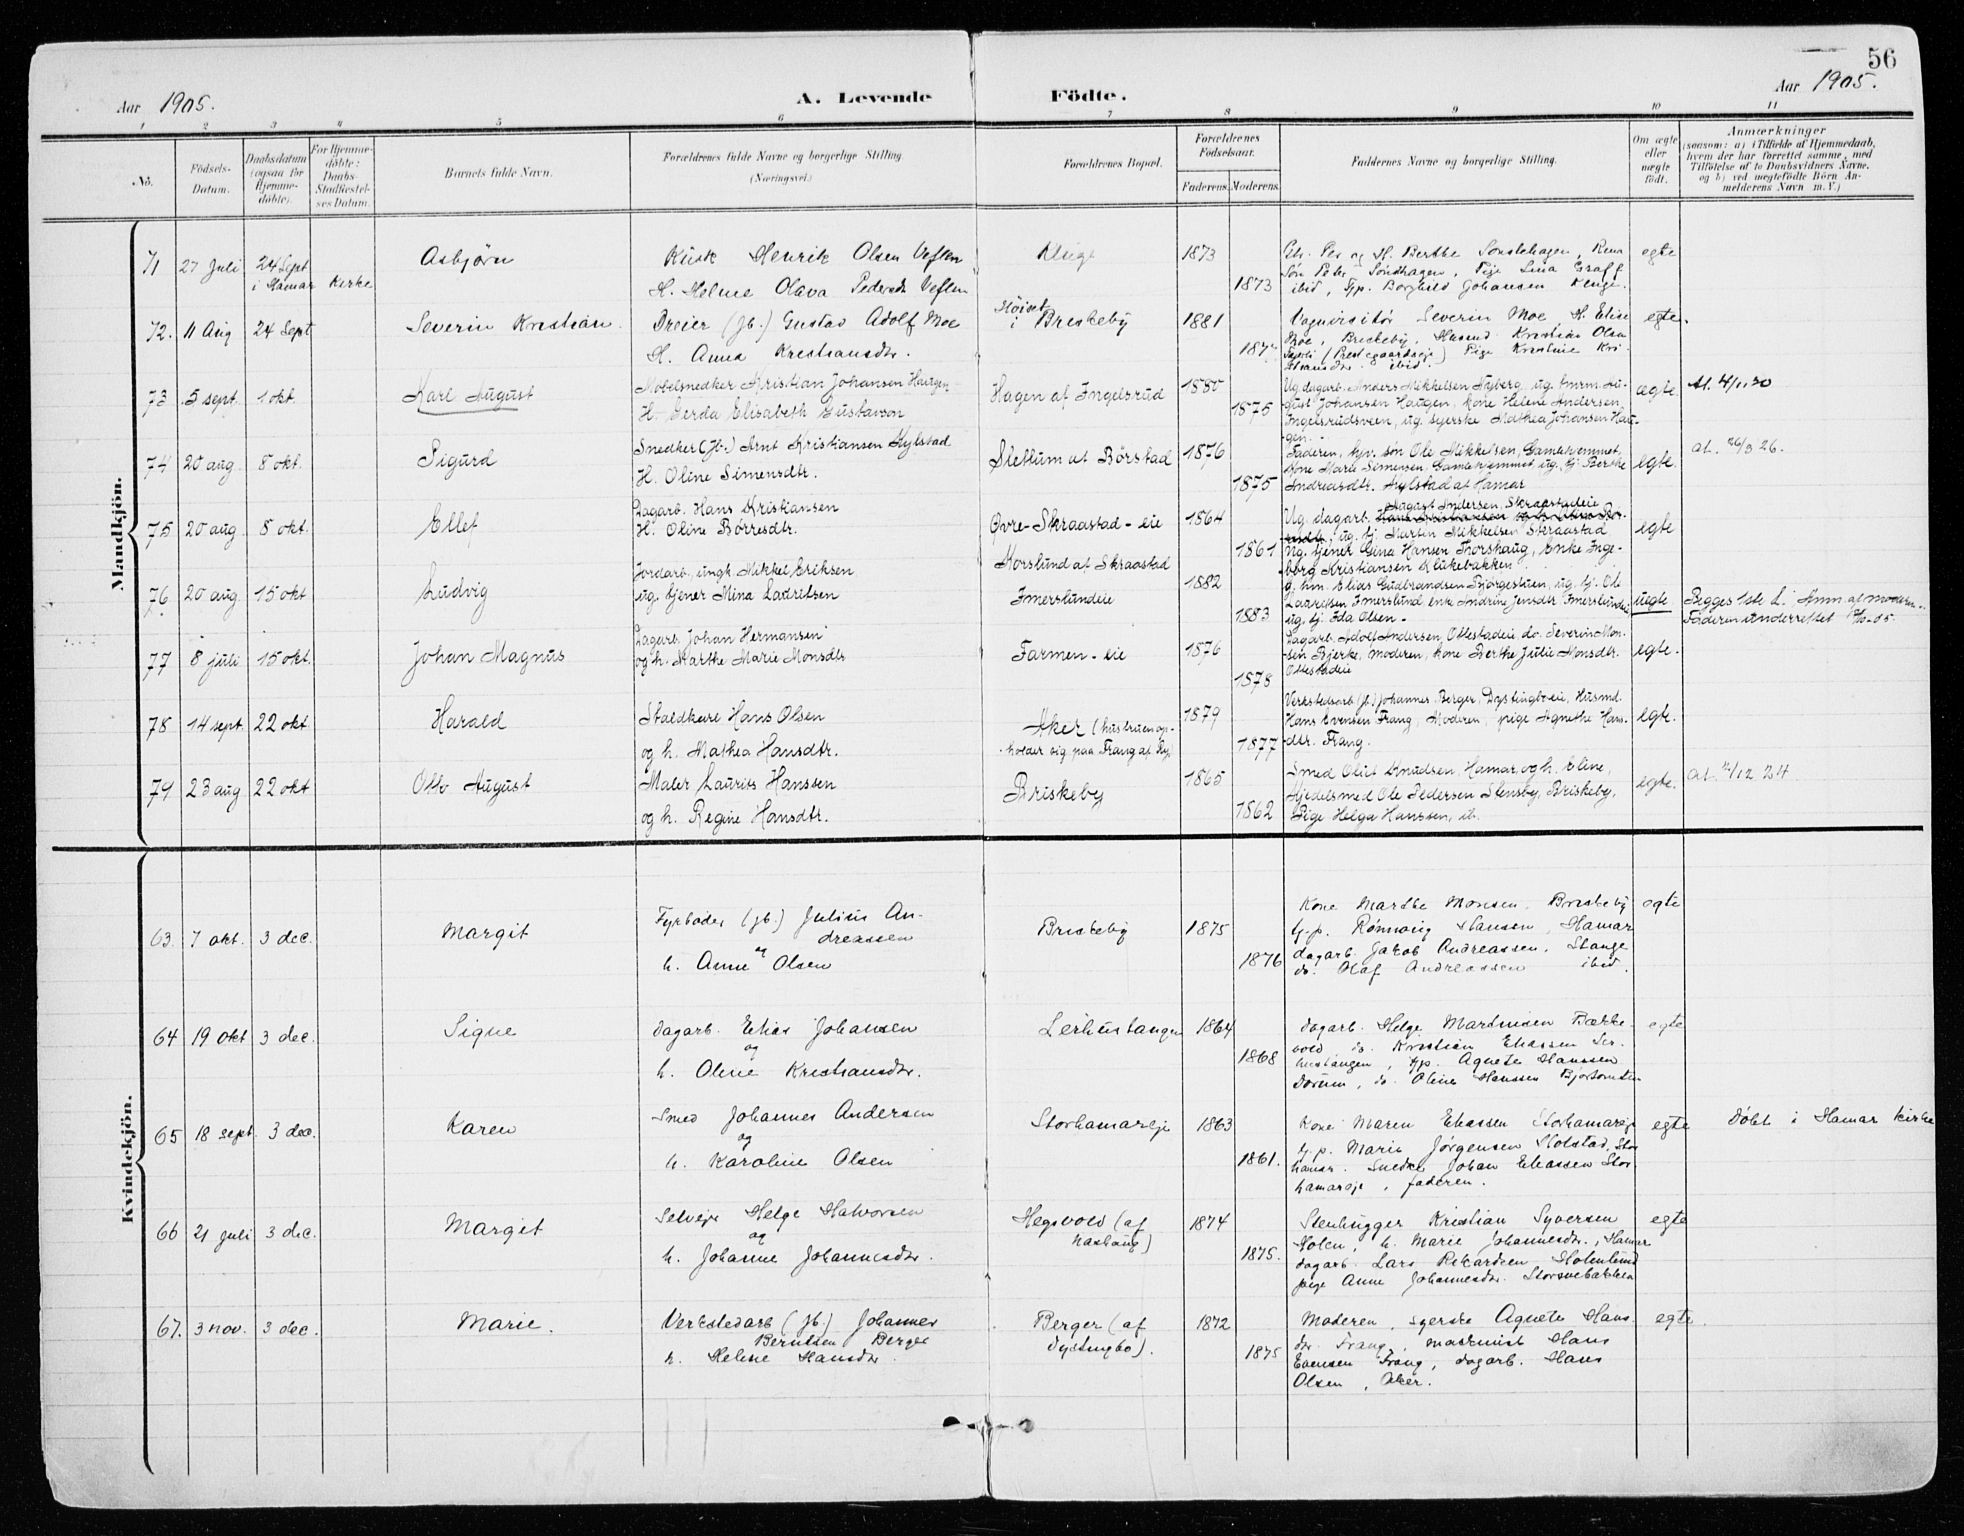 56
Aar 1905.
A. Levende Födte.
Aar 1905.
1 2 3 4 5 6 7 8 9 10 11
No.
Födsels-Datum.
Daabsdatum (ogsaa for Hjemmedöbte).
For Hjemmedöbte: Daabs-Stadfæstelses Datum.
Barnets fulde Navn.
Forældrenes fulde Navne og borgerlige Stilling. (Næringsvei.)
Forældrenes Bopæl.
Forældrenes Födselsaar.
Faderens. Moderens.
Faddernes Navne og borgerlige Stilling.
Om ægte eller uægte födt.
Anmærkninger
(saasom: a) i Tilfælde af Hjemmedaab, hvem der har forrettet samme, med Tilföielse af to Daabsvidners Navne, og b) ved uægtefödte Börn Anmelderens Navn m. V.)
Mandkjön.
71 27 Juli 24 Sept i Hamar Kirke
Asbjørn
Kusk Henrik Olsen Veflen
H. Helme Olava Pedersdr Veflen
1873
1873
egte
72. 11 Aug 24 Sept
Severin Kristian
Dreier (Jb.) Gustav Adolf Moe
H. Anna Kristiansdtr.
i Briskeby
1881
Vognvisitør Severin Moe H. Elise
Moe, Briskeby, Husmd Kristian Olsen
Pige Kristine Kri-
stiansdtr. ibid.
egte.
73 5 sept. 1 okt.
Karl August
Møbelsnedker Kristian Johansen Haugen
H. Gerda Elisabeth Gustavson
Hagen af Ingelsrud
1880
1875
Ug. dagarb. Anders Mikkelsen Nyberg, ug. tmrm. Au-
gust Johansen Haugen, kone Helene Andersen
Ingelsrudsveen, ug. syerske Mathea Johansen Hau-
gen.
ægte
at. 4/11 30
74 20 aug. 8 okt.
Sigurd
Snedker (Jb.) Arnt Kristiansen Nylstad
H. Oline Simensdtr.
Slettum at Börstad
1876
1875
Faderen, gbr. søn Ole Mikkelsen, Gamlehjemmet,
Kone Marie Simensen, Gamlehjemmet ug. tj. Berthe
Andreasdtr. Nylstad at Hamar
egte.
at. 26/3 26.
75 20 aug 8 okt.
Ellef
Dagarb. Hans Kristiansen
H. Oline Börresdtr.
Øvre-Skraastad-eie
1864
1861
August Andersen, Skraastadeie
Ug. dagarb. Hans Kristiansen
ug. tj. Martin Mikkelsen Skraastad
Ug. tjener Gina Hansen Thorshaug, Enke Inge-
borg Kristiansen Klukebakken
egte
76 20 aug. 15 okt
Ludvig
Jordarb., ungk. Mikkel Eriksen
ug. tjener Mina Lauritsen
Morslund at Skraastad
Imerslundeie
1882
1883
g. hm. Elias Gudbrandsen Bjørgestuen, ug. tj. Ole
Lauritsen Imerslund enke Andrine Jensdtr Imerslundeie
ug. tj. Ida Olsen.
uegte
Begges 1ste L. Anm. af moderen.
Faderen underrettet
77 8 juli 15 okt.
Johan Magnus
Dagarb. Johan Hermansen
og h. Marthe Marie Monsdtr
Farmen-eie
1876
1878
Dagarb. Adolf Andersen, Ottestadeie, do. Severin Mon-
sen Bjerke, moderen, kone Berthe Julie Monsdtr.
Ottestadeie
egte.
78 14 sept. 22 okt
Harald
Staldkarl Hans Olsen
og h. Mathea Hansdtr.
Aker (hustruen op-
holder sig paa Frang at
1879
1877
Verkstedsarb. (jb.) Johannes Berger, Dystingboeie, Husmd.
Hans Evensen Frang, Moderen, pige Agnethe Hans-
dtr. Frang.
egte.
79 23 aug 22 okt
Otto August
Maler Laurits Hanssen
og h. Regine Hansdtr.
Briskeby
1865
1862
Smed Oluf Knudsen, Hamar, og h. Eline,
Hjulsmed Ole Pedersen Stensby, Briskeby,
Pige Helga Hanssen, ib.
egte.
at. 2/12 24
Kvindekjön.
63. 7 okt. 3 dec.
Margit
Fyrbøder (jb.) Julius An-
dreassen
og
h. Anne Olsen
Briskeby
1875
1876
Kone Marthe Monsen, Briskeby
tj.p. Rønnaug Hansen, Hamar
dagarb. Jakob Andreassen, Stange
do. Olaf Andreassen ibid.
egte
64 19 okt 3 dec.
Signe
Dagarb. Elias Johansen
og
h. Oline Kristiansdtr.
Lerhustangen
1864
1868
Dagarb. Helge Martinsen Bække-
vold, do. Kristian Eliassen Ler-
hustangen, tjp. Agnete Hanssen
do. Oline Hanssen
egte
65 18 sept. 3 dec.
Karen
Smed Johannes Andersen
og
h. Karoline Olsen
Storhamareje
1863
1861.
Kone Maren Eliassen Storhamareje
tj.p. Marie Jørgensen Holstad, Stor
hamar. Snedker Johan Eliassen Stor
hamareje, faderen.
egte
Døbt i Hamar kirke
66 21 juli 3 dec.
Margit
Selveje Helge Halvorsen
og
h. Johanne Johannesdtr.
Hegsvold (af
1874
1875.
Stenhugger Kristian Syversen
Holen, h. Marie Johannesdtr., Hamar
dagarb. Lars Rikardsen Holmlund
pige Anne Johannesdtr. Storsvebakken
egte
67. 3 nov. 3 dec.
Marie.
Verkstedarb (jb.) Johannes
Berntsen Berger
h. Helene Hansdtr.
Berger (af
Dystingbo).
1872
1875
Moderen, syerske Agnete Hans-
dtr. Frang, maskinist Hans
Evensen Frang, dagarb. Hans
Olsen, Aker.
egte.